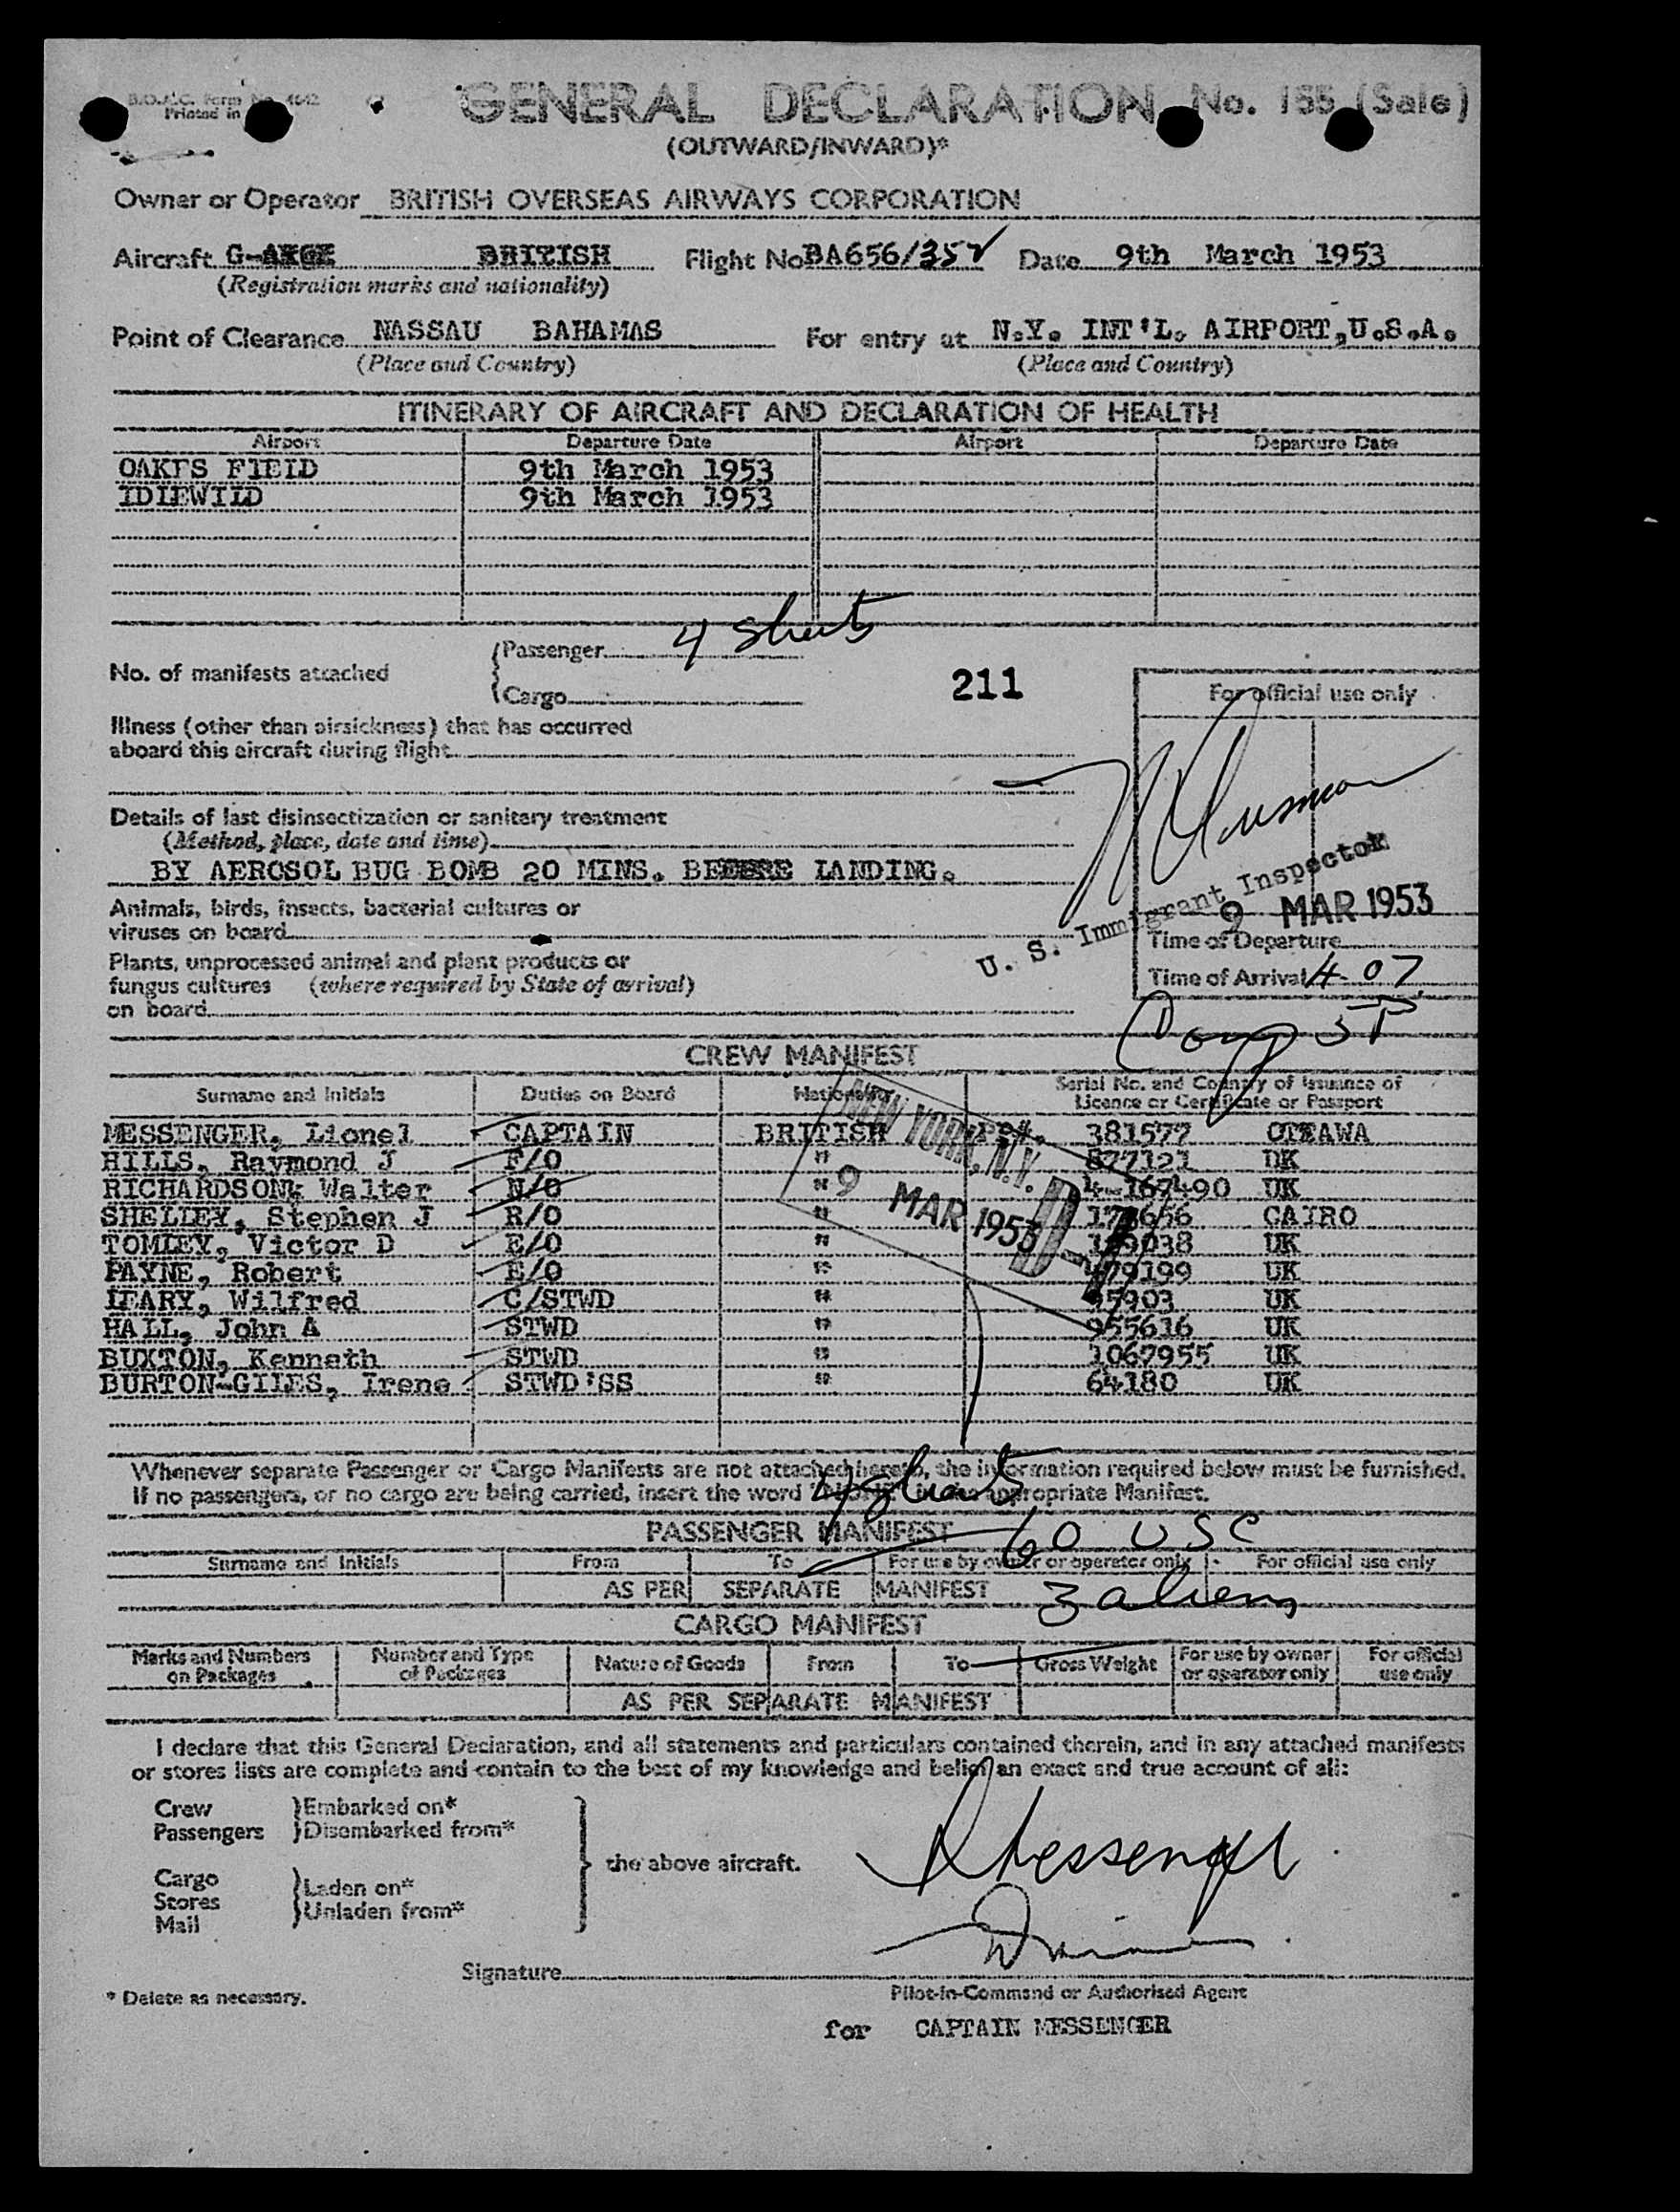 B.O.A.C. Form No. 4642
Printed in
GENERAL DECLARATION No. 155 (Sale)
(OUTWARD/INWARD)*
Owner or Operator BRITISH OVERSEAS AIRWAYS CORPORATION
Aircraft BRITISH Flight No BA656/352 Date 9th March 1953
(Registration marks and nationality)
Point of Clearance NASSAU BAHAMAS For entry at N.Y. INT'L. AIRPORT, U.S.A.
(Place and Country) (Place and Country)
ITINERARY OF AIRCRAFT AND DECLARATION OF HEALTH
Airport Departure Date Airport Departure Date
OAKES FIELD 9th March 1953
IDLEWILD 9th March 1953
Passenger 4 sheets
No. of manifests attached 211
Cargo
For official use only
Illness (other than airsickness) that has occurred
aboard this aircraft during flight
Details of last disinsectization or sanitary treatment
(Method, place, date and time)
BY AEROSOL BUG BOMB 20 MINS. BEFORE LANDING.
U. S. Immigrant Inspector
9 MAR 1953
Animals, birds, insects, bacterial cultures or
viruses on board
Time of Departure
Plants, unprocessed animal and plant products or
fungus cultures (where required by State of arrival)
on board
Time of Arrival 4-07
CREW MANIFEST
Surname and Initials Duties on Board Nationality Serial No. and Country of Issuance of
Licence or Certificate or Passport
NEW YORK, N.Y.
9 MAR 1953
MESSENGER, Lionel CAPTAIN BRITISH 381577 OTTAWA
HILLS, Raymond J F/O " 877121 UK
RICHARDSON, Walter N/O " 4-167490 UK
SHELLEY, Stephen J R/O " CAIRO
TOMLEY, Victor D E/O " UK
PAYNE, Robert E/O " 479199 UK
LEARY, Wilfred C/STWD " UK
HALL, John A STWD " 955616 UK
BUXTON, Kenneth STWD " 1067955 UK
BURTON-GILES, Irene STWD'SS " 64180 UK
Whenever separate Passenger or Cargo Manifests are not attached hereto, the information required below must be furnished.
If no passengers, or no cargo are being carried, insert the word "NONE" in the appropriate Manifest.
4 sheets
PASSENGER MANIFEST 60 USC
Surname and Initials From To For use by owner or operator only For official use only
AS PER SEPARATE MANIFEST 3 aliens
CARGO MANIFEST
Marks and Numbers on Packages Number and Type of Packages Nature of Goods From To Gross Weight For use by owner or operator only For official use only
AS PER SEPARATE MANIFEST
I declare that this General Declaration, and all statements and particulars contained therein, and in any attached manifests
or stores lists are complete and contain to the best of my knowledge and belief an exact and true account of all:
Crew Embarked on*
Passengers Disembarked from*
the above aircraft.
Cargo Laden on*
Stores Unladen from*
Mail
Messenger
Signature
* Delete as necessary. Pilot-in-Command or Authorised Agent
for CAPTAIN MESSENGER